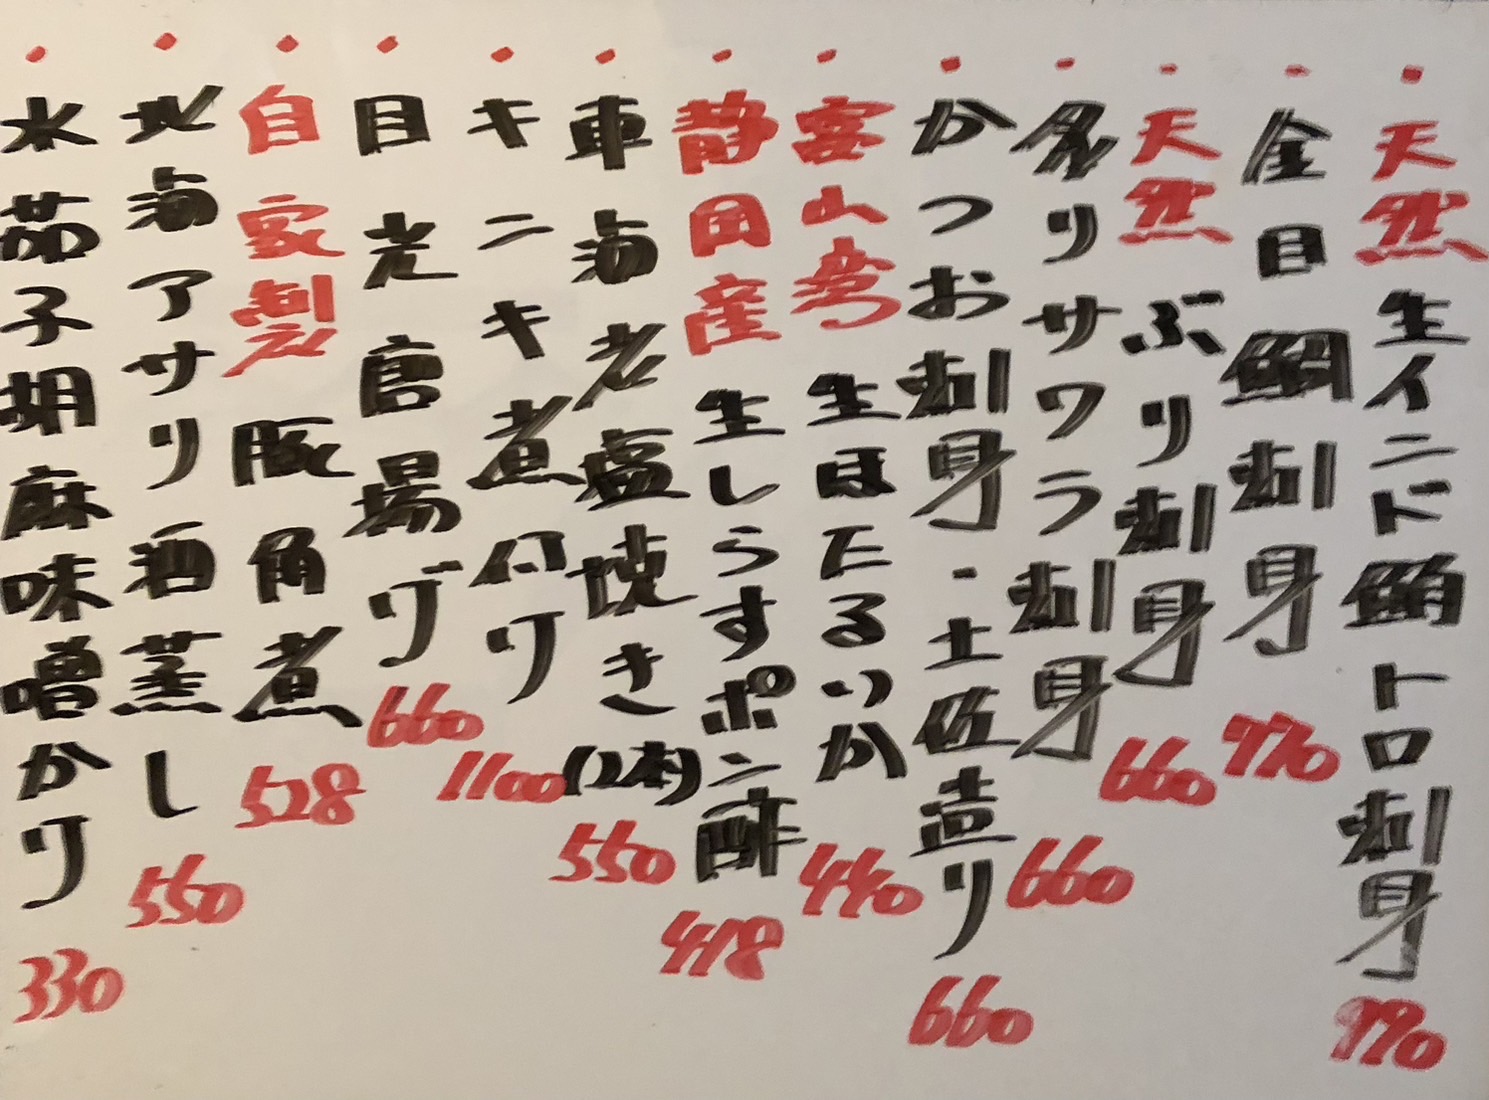 ・天然生インド鮪トロ刺身 990
・金目鯛刺身 770
・天然ぶり刺身 660
・炙りサワラ刺身 660
・かつお刺身・土佐造り 660
・富山産生ほたるいか 440
・静岡産生しらすポン酢 418
・車海老塩焼き(2本) 550
・キンキ煮付け 1100
・目光唐揚げ 660
・自家製豚角煮 528
・北海アサリ酒蒸し 550
・水茄子胡麻味噌かけ 330